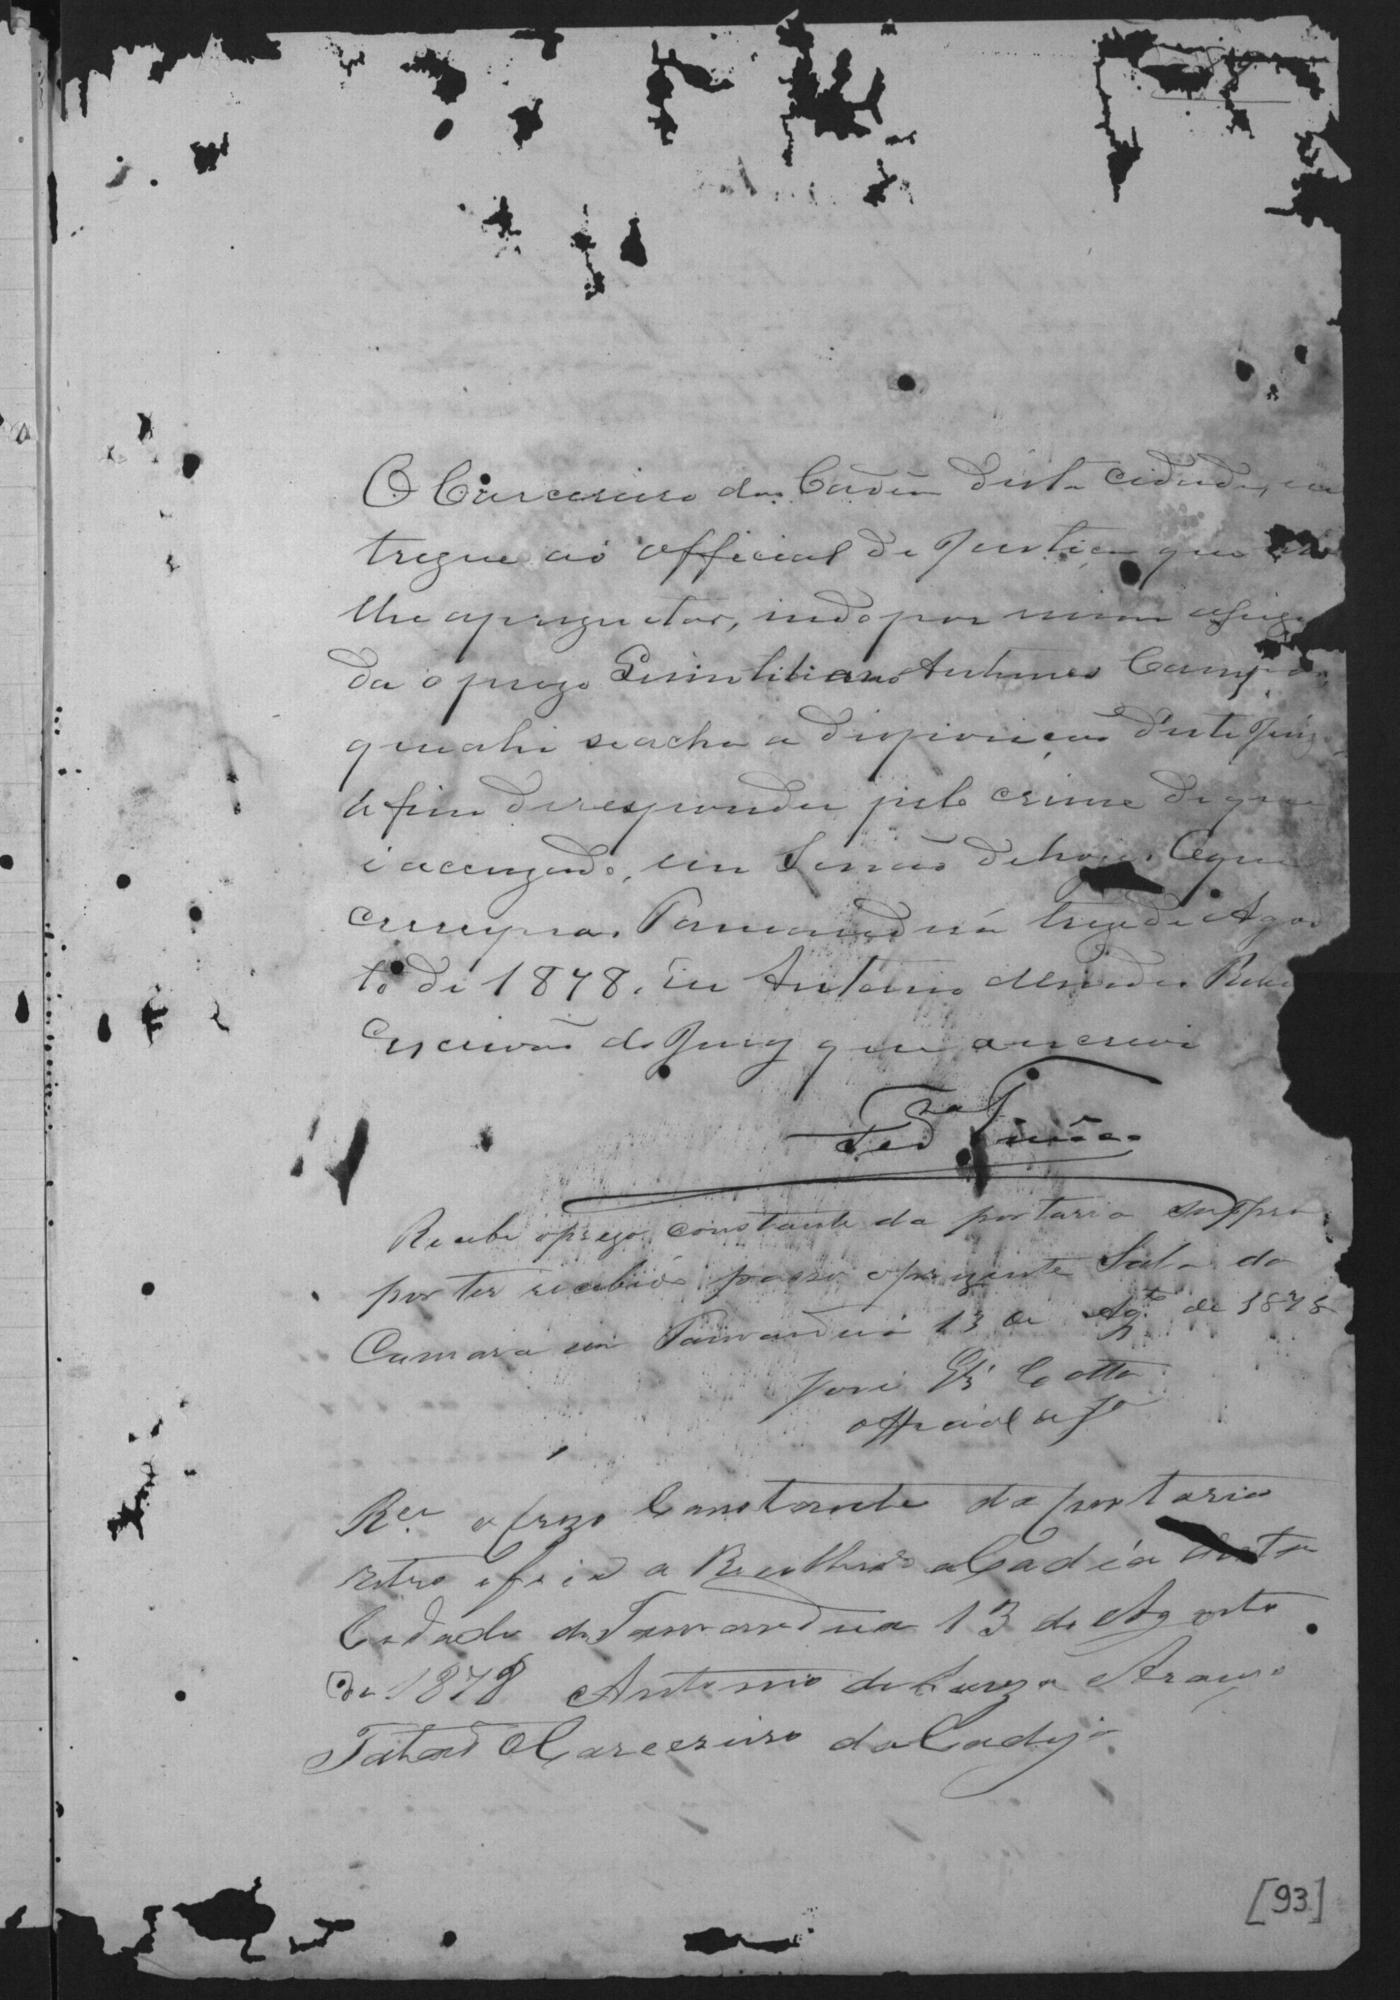 O Carcereiro da Cadeia desta cidade, en
tregue ao official de Justiça que esta
lhe aprezentar, indo por mim assigna
da o prezo Quintiliano Antunes Campos,
que ahi se acha a disposição d'este Juizo
a fim de responder pelo crime de que
é accuzado, em Sessão de hoje. O que
cumpra. Tamanduá treze de Agos
to de 1878. Eu Antonio Mendes
Escrivão do Jury que a escrevi
Recebi o prezo constante da portaria suppra
por ter recebido passo o prezente Sala da
Camara em Tamanduá 13 de Ag.to de 1878
José Cotta
official de J.a
Rec. o prezo Constante da portaria
retro e foi a Recolhido a Cadêa desta
Cidade de Tamanduá 13 de Agosto
de 1878 Antonio de Souza Araujo
O Carcereiro da Cadeja
[93]